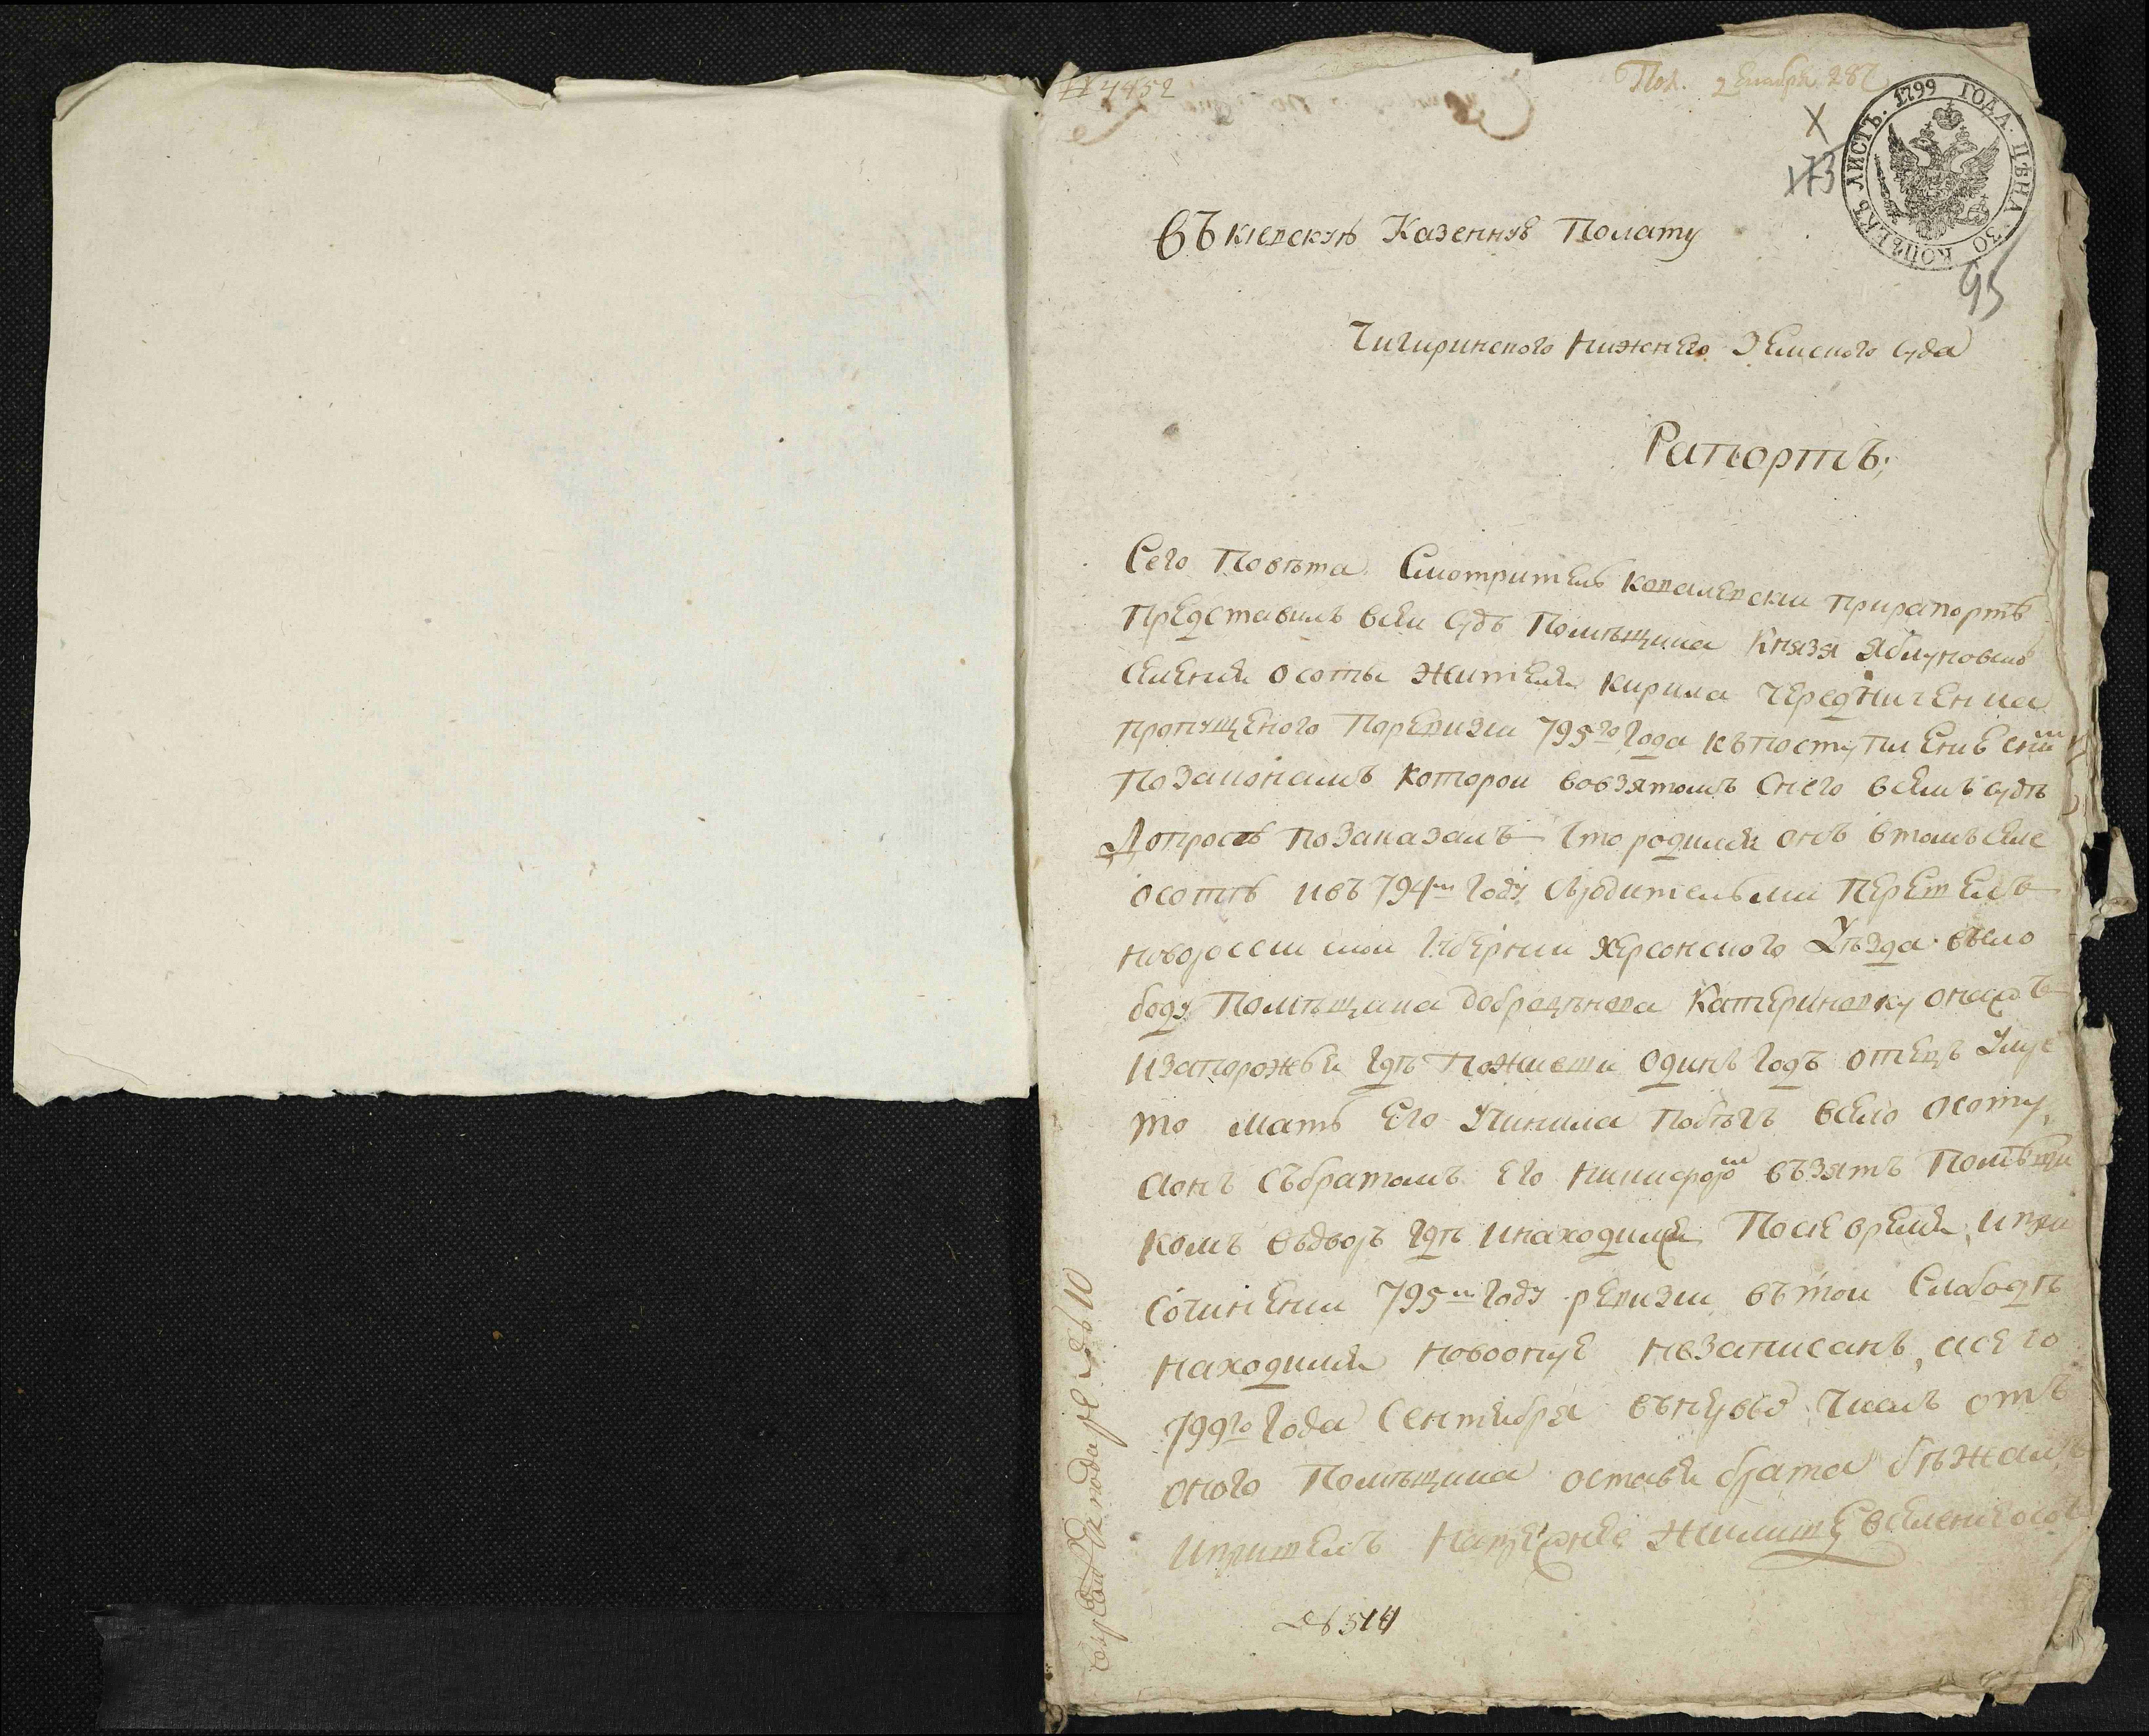 № 4452
Пол. 2 Генваря
1799 ГОДА. ЦѢНА 30 КОПѢЕКЪ ЛИСТЪ.
X
173
95
Въ киевскую Казенную Полату
Чигиринского Нижнего Земского Суда
Рапортъ;
Сего Повѣта Смотритель Ковалевски прирапортѣ
Представилъ всеи судъ Помѣщика Князя Яблуновско
селения осоты жителя кирила Чередниченка
пропущеного Поревизии 795го года къпоступлению сним
Позаконамъ которои вовзятомъ снего всемъ судѣ
Допросѣ позаказалъ что родился онъ втомъ селе
осотѣ ивъ 794м году съродительми перешелъ
новоросииской Губернии херсонского Уѣзда всло
боду Помѣщика Катериновку
Изапорожья гдѣ поживши одинъ годъ отецъ уме
то мать его учинила побѣгъ всело осоту,
аонъ събратомъ его взятъ Помѣщи
комъ въдворъ гдѣ инаходился Посіе время, ипри
сочинении 795м году ревизии въ тои Слободѣ
находился новоонуе незаписанъ, асего
799го Года Сентября Числъ отъ
оного Помѣщика оставя брата бѣжалъ
ипришелъ жилище вселение осо
№ 5144